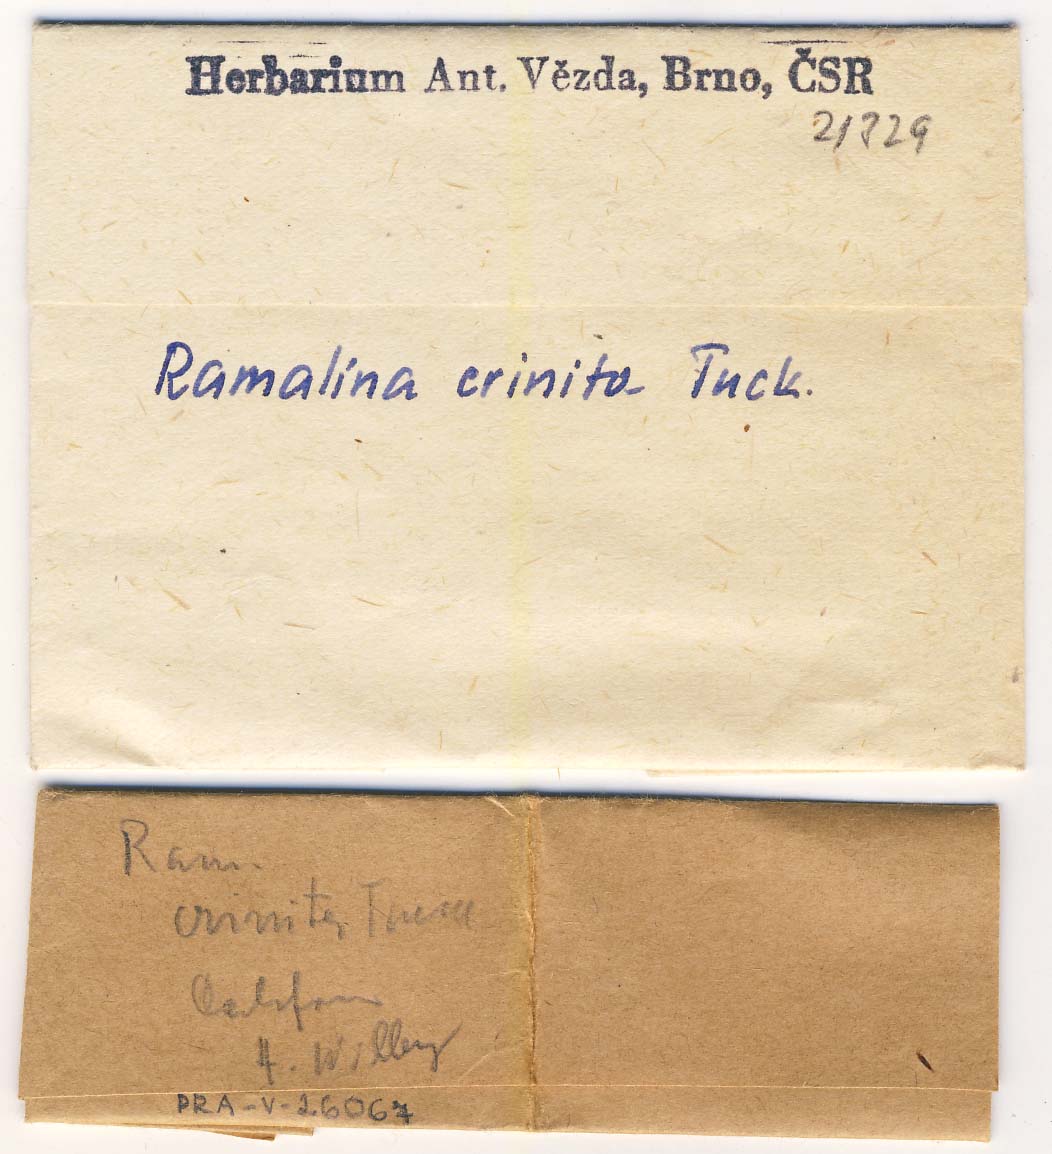 Herbarium Ant. Vězda, Brno, ČSR
Ramalina crinita Tuck.
Ram.
crinita Tuck
Californ
H. Willey
PRA-V-26067